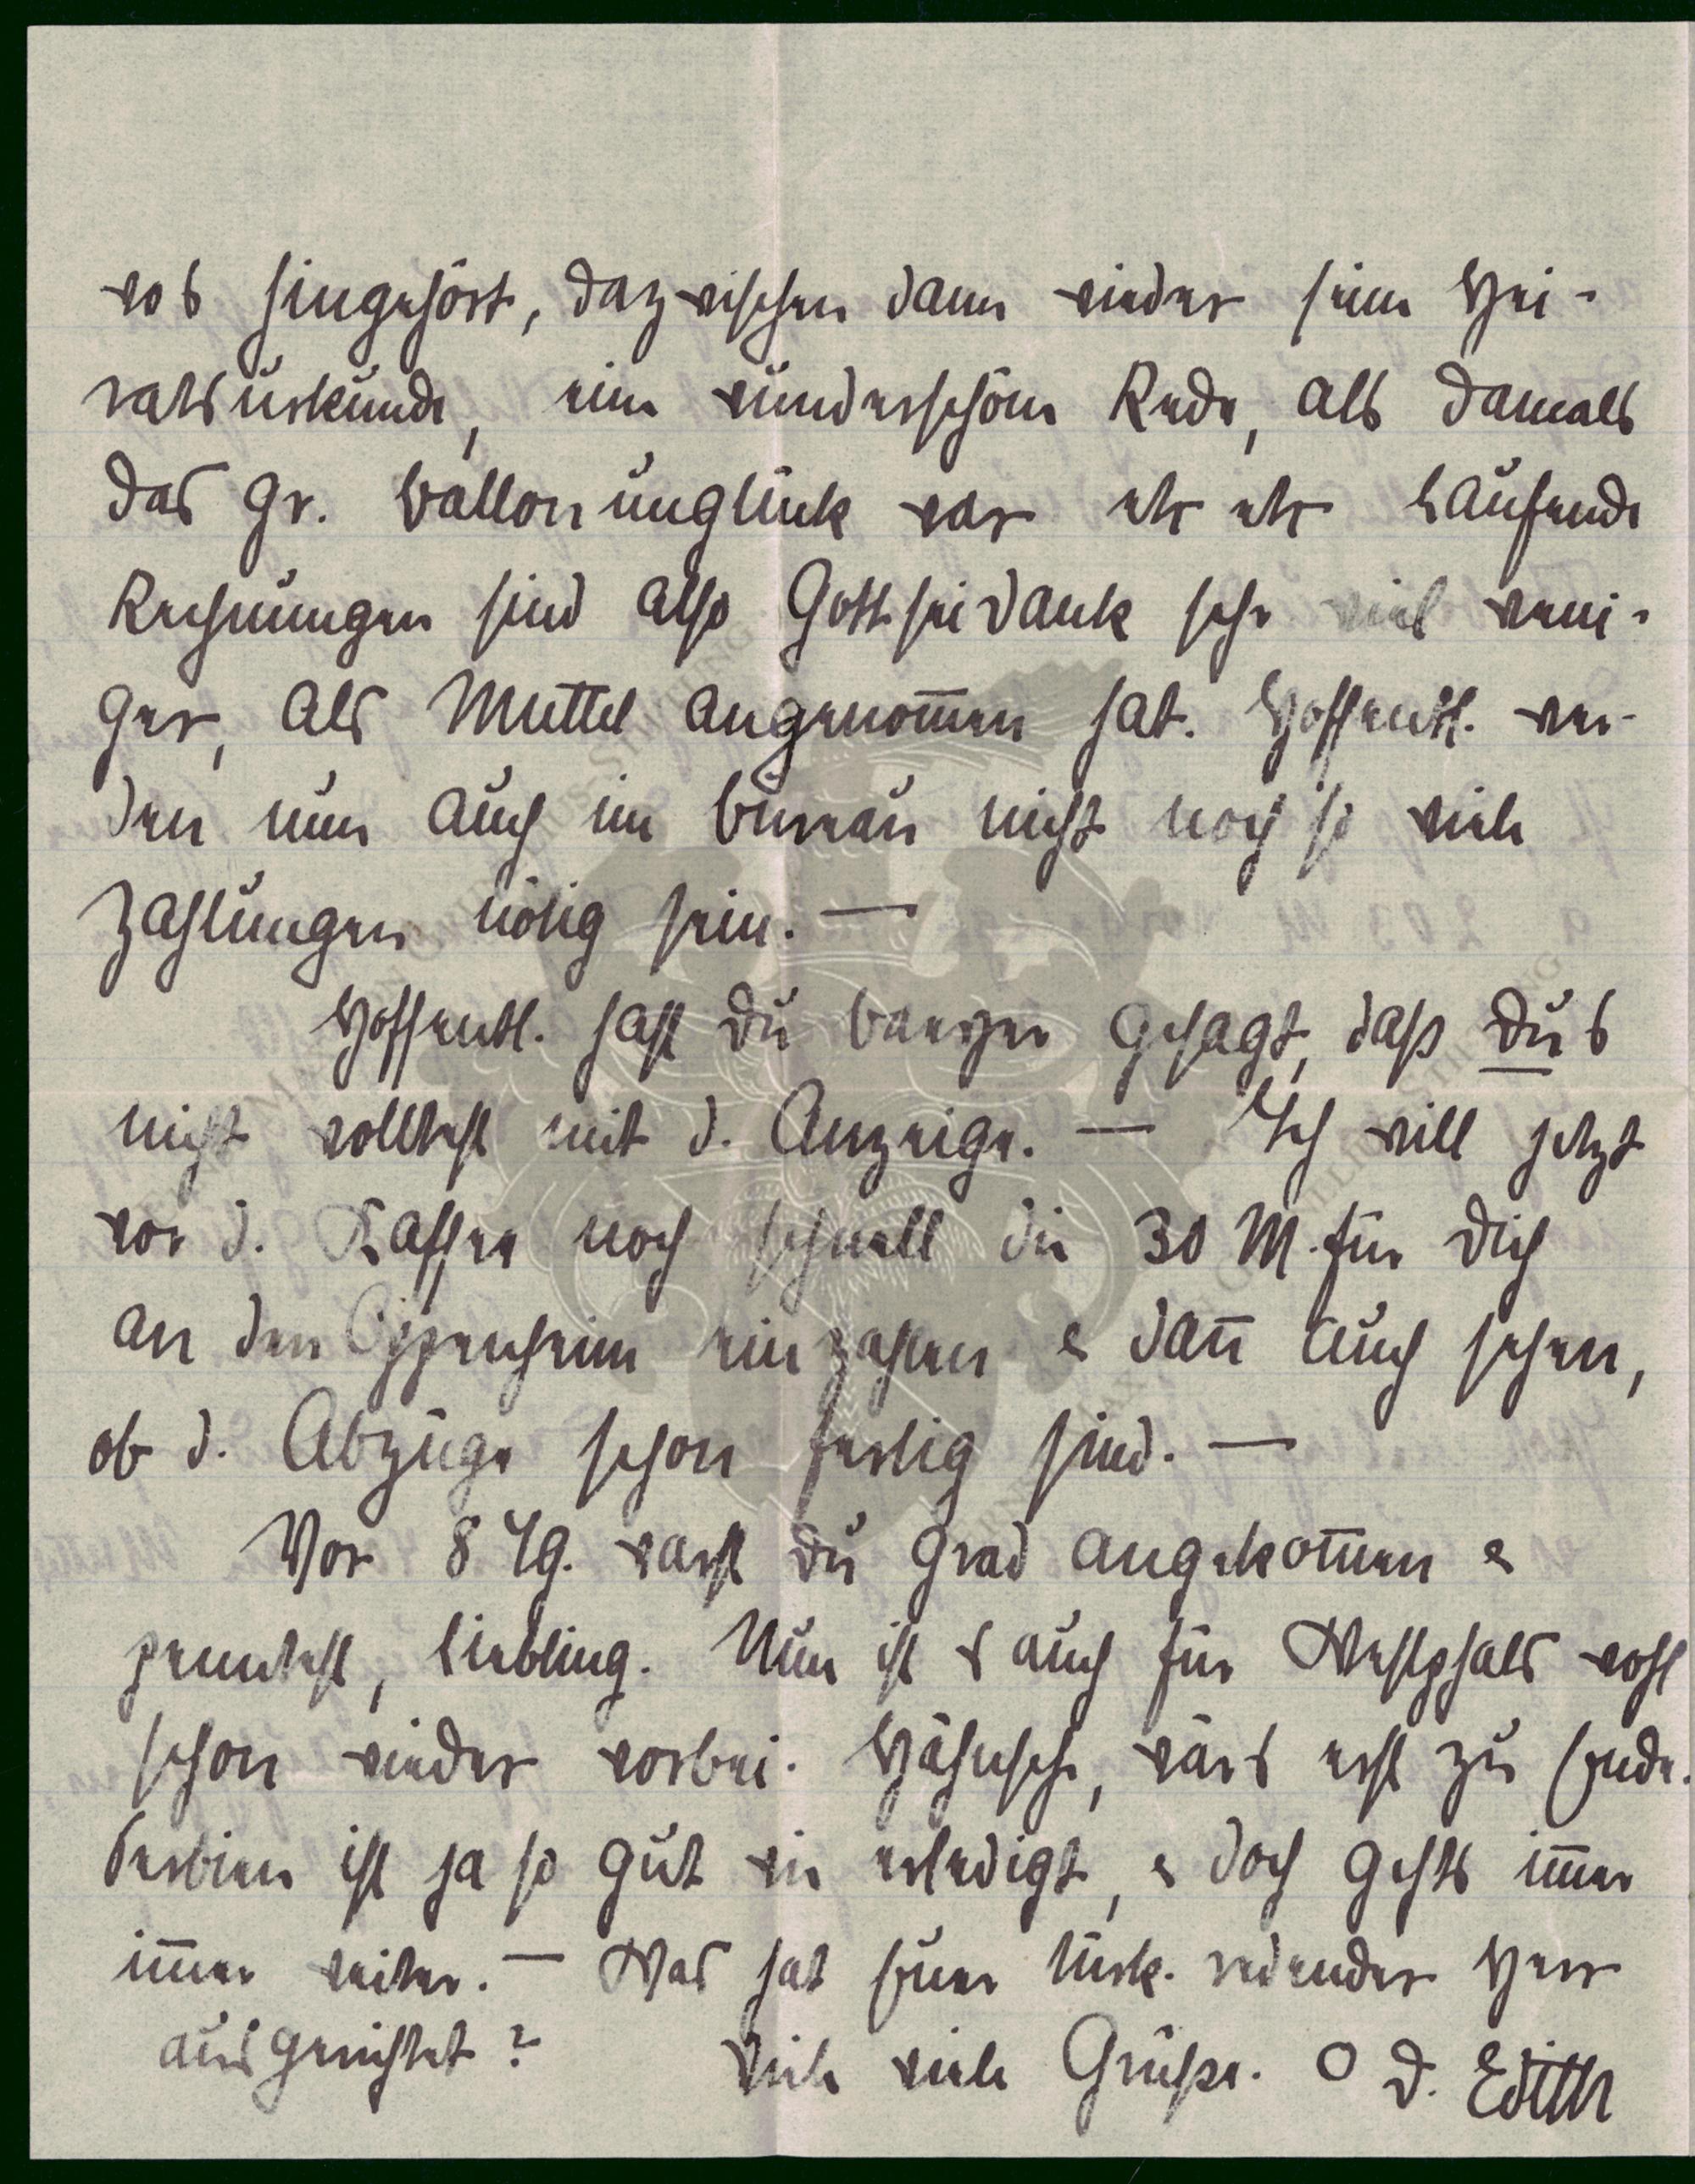 wos hingehört, dazwischen dann wieder seine Hei-
ratsurkunde, eine wunderschöne Rede, als damals
das gr. Ballonunglück war etc etc Laufende
Rechnungen sind also Gottseidank sehr viel weni-
ger, als Muttel angenom̅en hat. Hoffentl. wer-
den nun auch im Bureau nicht noch so viele
Zahlungen nötig sein. —
Hoffentl. hast Du gesagt, daß Dus
nicht wolltest mit d. Anzeige. — Ich will jetzt
vor d. Kaffee noch schnell die 30 M. für Dich
an den Oppenheim einzahlen & dan̅ auch sehen,
ob d. Abzüge schon fertig sind. —
Vor 8 Tg. warst Du grad angekom̅en &
penntest, Liebling. Nun ist s auch für Westphals wohl
schon wieder vorbei. Hähnsche, wärs erst zu Ende.
Serbien ist ja so gut wie erledigt, & doch gehts im̅er
im̅er weiter. — Was hat Euer türk. redender Herr
ausgerichtet? Viele viele Grüße. O D. Edith